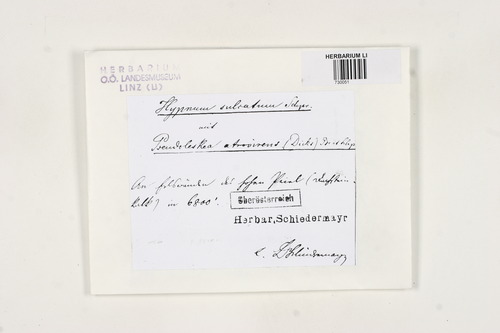 HERBARIUM
O.Ö. LANDESMUSEUM
LINZ (LI)
HERBARIUM LI
Hypnum sulcatum Schpr.
mit
Pseudoleskea atrovirens (Dicks)
An Felswänden des hohen Priel
Kalk) in 6800'.
Oberösterreich
Herbar, Schiedermayr
C. Schiedermayr